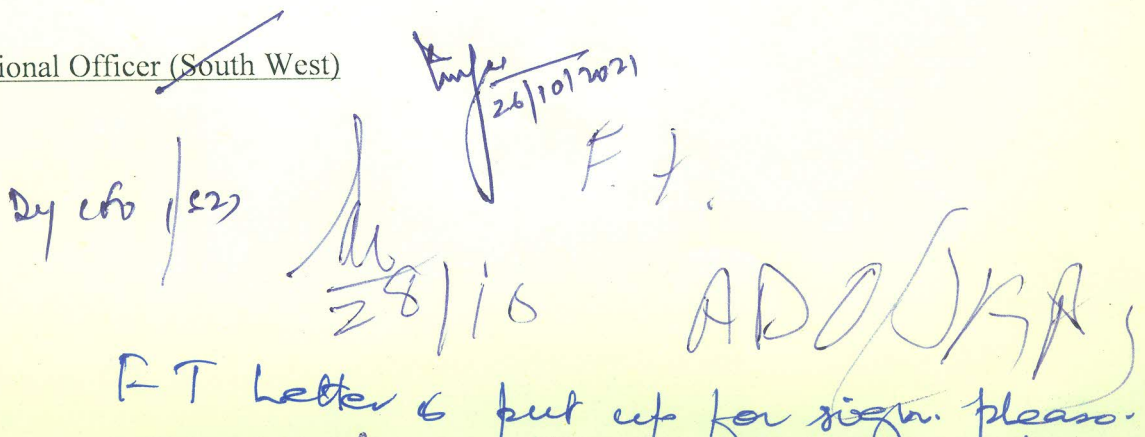 ional Officer (South West)
26/10/2021
F. T.
Dy CFO (SZ)
28/10
ADO/JKP
FT Letter is put up for sign. please.